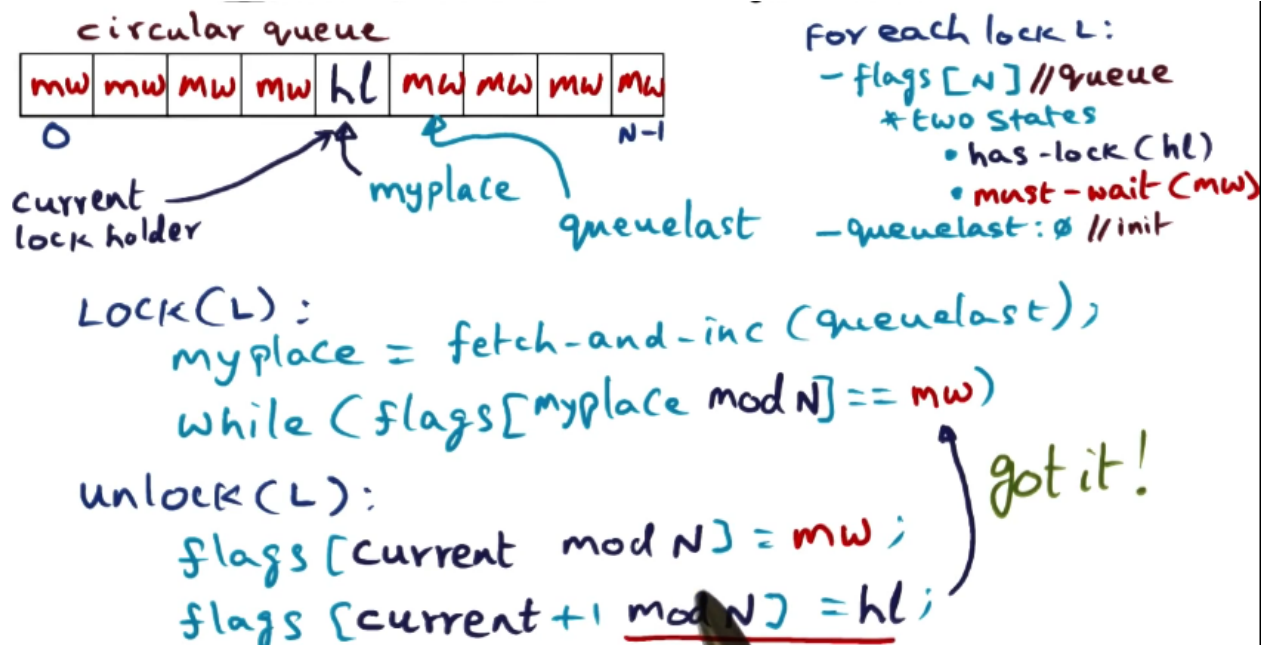 circular queue
mw mw mw mw hl mw mw mw mw
0 N-1
current
lock holder
myplace
queuelast
For each lock L:
- flags[N] //queue
* two states
• has-lock (hl)
• must-wait (mw)
- queuelast: 0 //init
LOCK(L):
myplace = fetch-and-inc (queuelast);
while (flags[myplace mod N] == mw)
unlock(L):
flags [current mod N] = mw;
flags [current +1 mod N] = hl;
got it!